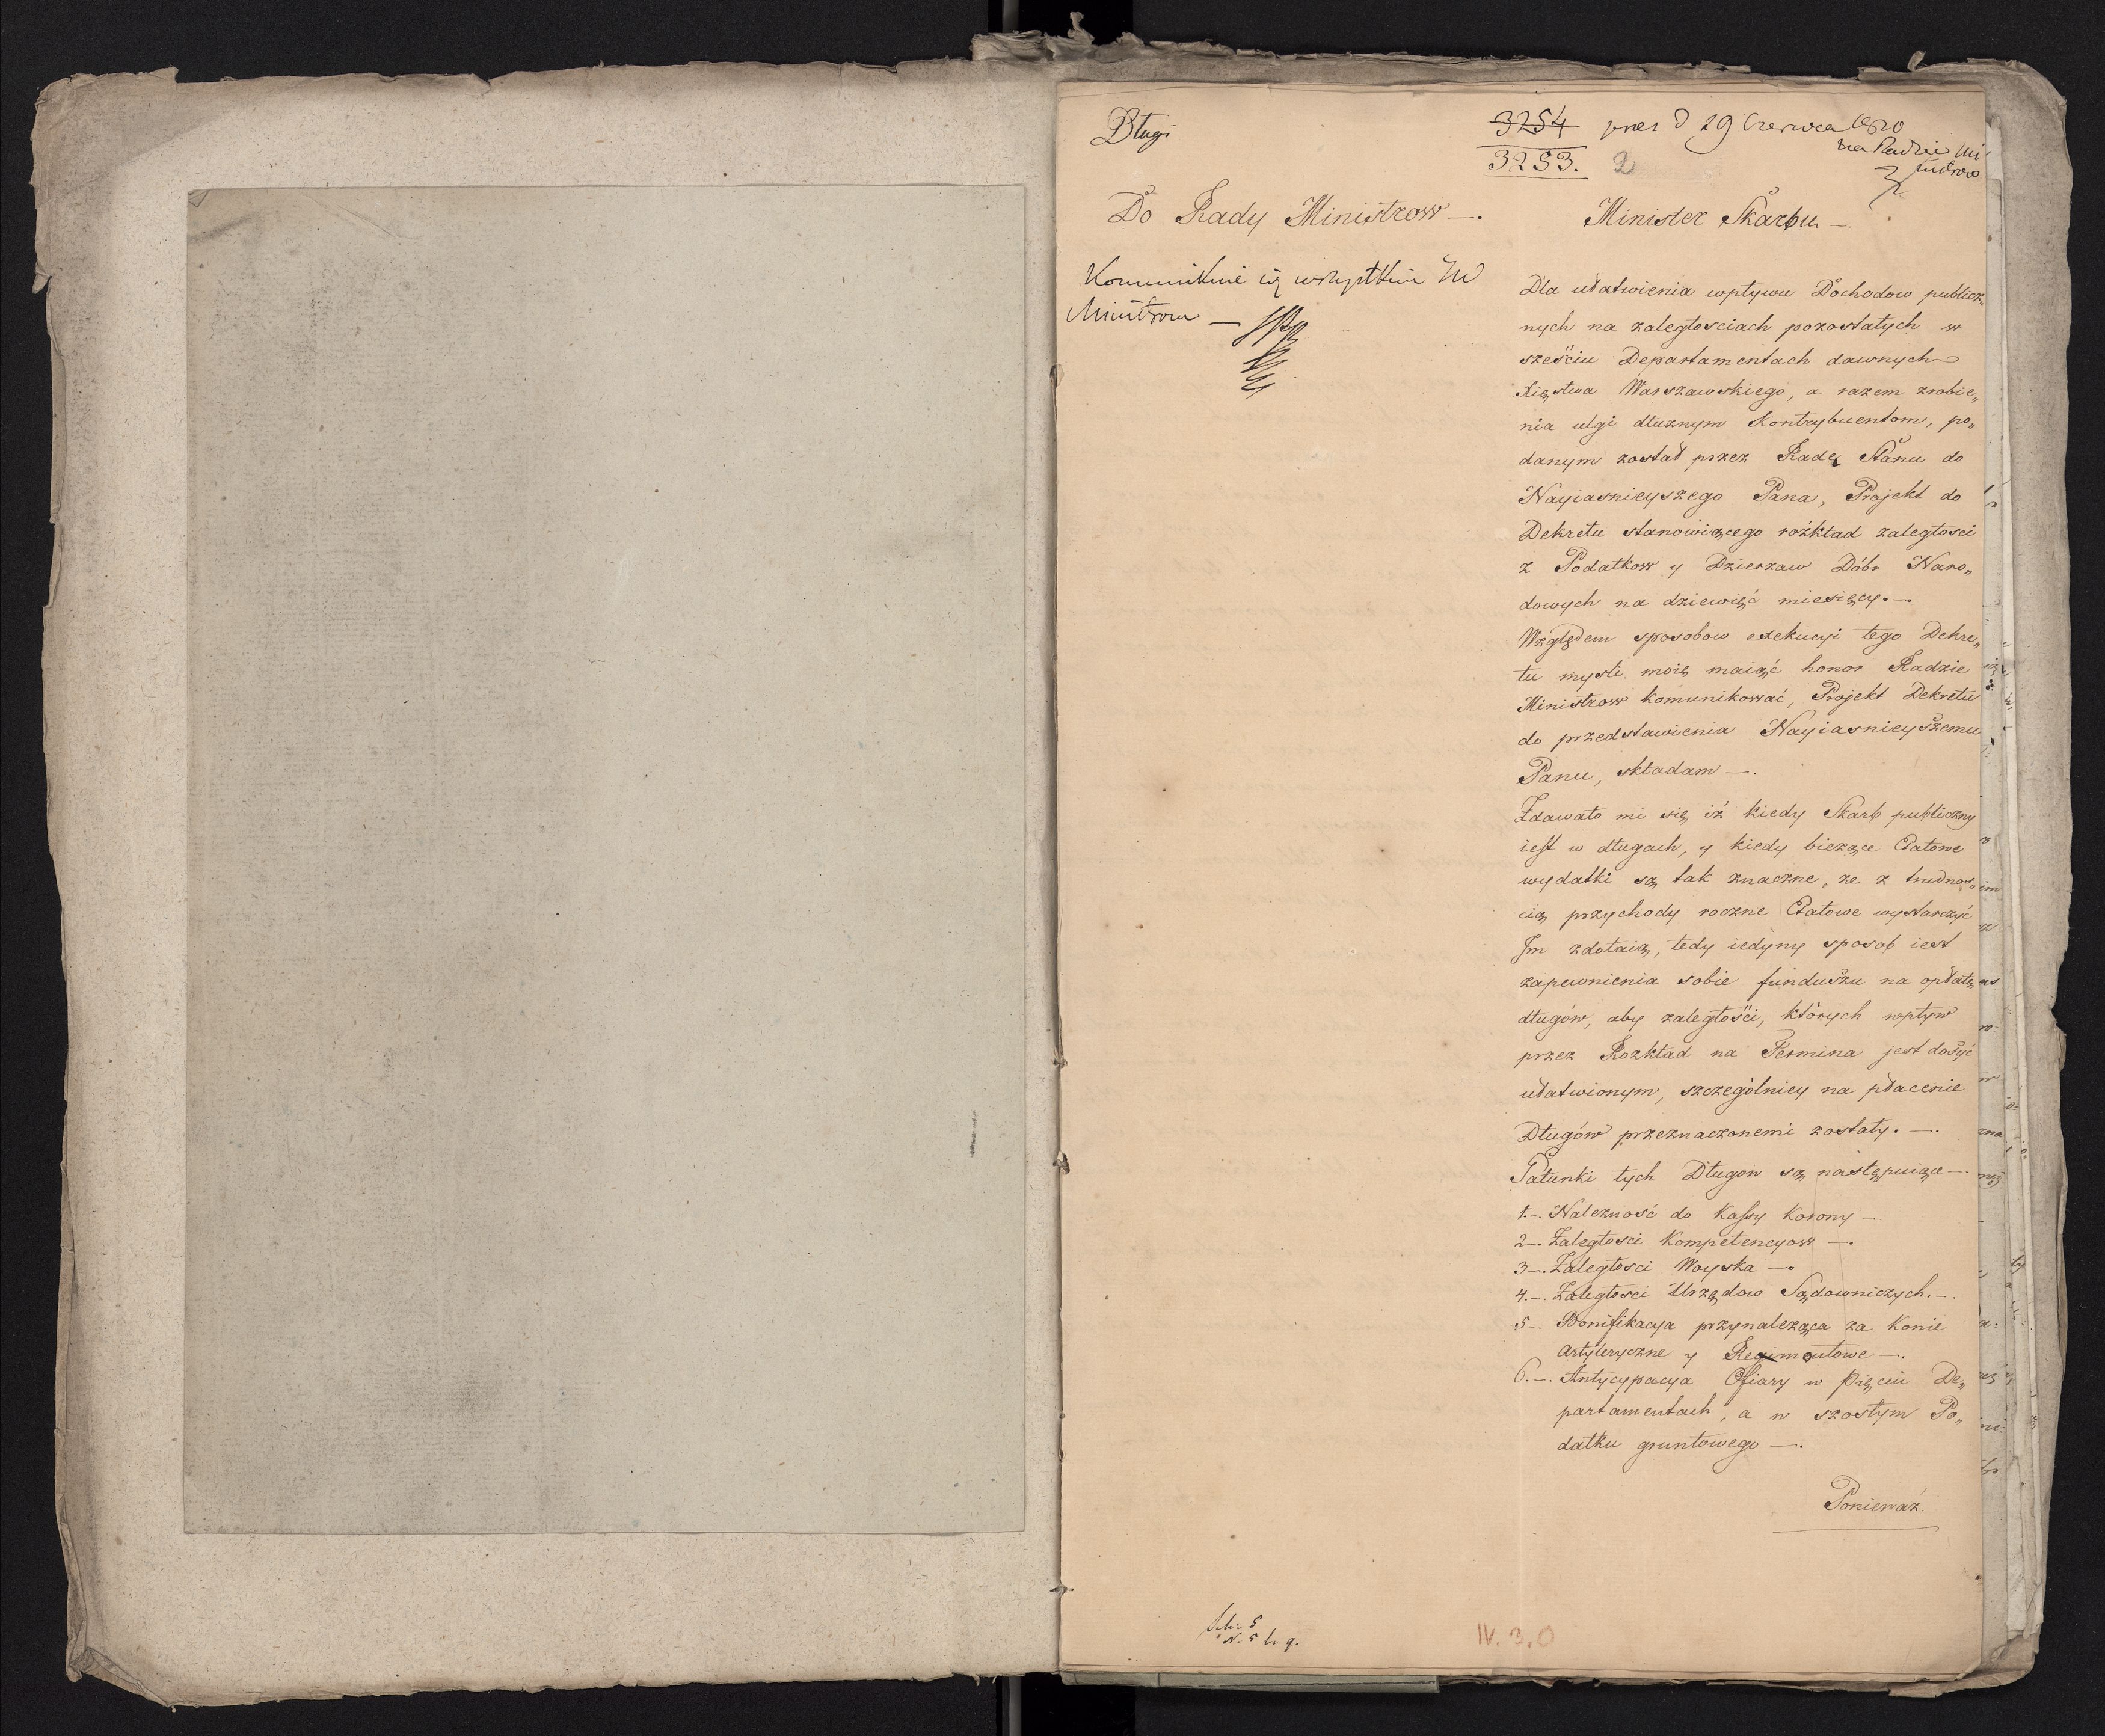 Długi
3254
3253.
pres d 29 Czerwca 1810
na Radzie Mi
nistrow
2
Do Rady Ministrow —.
Minister Skarbu —.
Komunikuie się wszystkim
Ministrom —
Dla ułatwienia wpływu Dochodow publicz„
nych na zaległosciach pozostałych w
sześciu Departamentach dawnych
Xięstwa Warszawskiego, a razem zrobie„
nia ulgi dłużnym Kontrybuentom, po„
danym został przez Radę Stanu do
Nayiasnieyszego Pana, Projekt do
Dekretu stanowiącego rozkład zaległosci
z Podatkow y Dzierzaw Dóbr Naro„
dowych na dziewięć miesięcy.—.
Względem sposobow exekucyi tego Dekre„
tu mysli moię maiąć honor Radzie
Ministrow komunikować, Projekt Dekretu
do przedstawienia Nayiasnieyszemu
Panu, składam —.
Zdawało mi się iż kiedy Skarb publiczny
iest w długach, y kiedy bieżące Etatowe
wydatki są tak znaczne, ze z trudnos„
cią przychody roczne Etatowe wystarczyć
Im zdołaią, tedy iedyny sposob iest
zapewnienia sobie funduszu na opłatę
długów, aby zaległości, których wpływ
przez Rozkład na Termina jest dosyć
ułatwionym, szczególniey na płacenie
Długów przeznaczonemi zostały. —.
Gatunki tych Długow są następuiące —.
1.—. Należność do Kassy Korony —.
2—. Zaległosci Kompetencyow —.
3—. Zaległosci Woyska —.
4.—. Zaległosci Urzędow Sądowniczych.—.
5—. Bonifikacya przynaleząca za Konie
Artyleryczne y Regimentowe —.
6.—. Antycypacya Ofiary w pięciu De„
partamentach, a w szostym Po„
datku gruntowego —.
Ponieważ.
IV. 3. 0